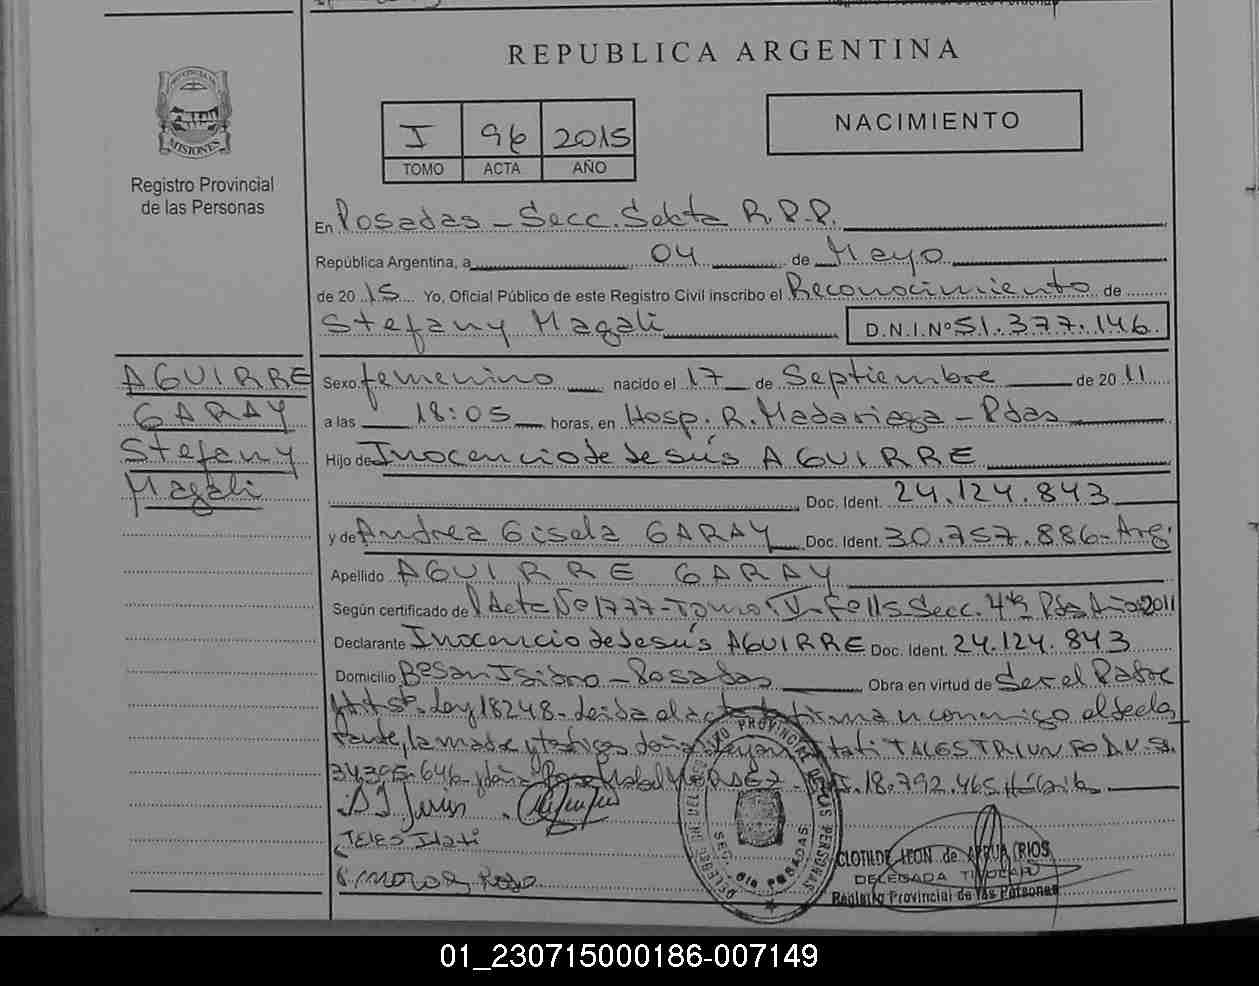 REPUBLICA ARGENTINA
PROVINCIA DE
MISIONES
Registro Provincial
de las Personas
I 96 2015
TOMO ACTA AÑO
NACIMIENTO
En Posadas - Secc. Sexta R.P.P.
República Argentina, a 04 de Mayo
de 2015 Yo, Oficial Público de este Registro Civil inscribo el Reconocimiento de
Stefany Magali D.N.I.Nº 51.377.146.
AGUIRRE
GARAY
Stefany
Magali
Sexo femenino nacido el 17 de Septiembre de 2011
a las 18:05 horas, en Hosp. R. Madariaga - Pdas
Hijo de Inocencio de Jesús AGUIRRE
Doc. Ident. 24.124.843
y de Andrea Gisela GARAY Doc. Ident. 30.757.886 - Arg.
Apellido AGUIRRE GARAY
Según certificado de Acta Nº 1777 - Tomo Secc. 4ta Pdas Año 2011
Declarante Inocencio de Jesús AGUIRRE Doc. Ident. 24.124.843
Domicilio Bº San Isidro - Posadas Obra en virtud de Ser el Padre
Ley 18248 - Leida el acta la firman conmigo el decla
rante, la madre y testigos doña Itati TALES TRIUNFO D.N.I.
34.395.646 y doña 18.792.465 Hábiles
Tales Itati
Rosa
REGISTRO PROVINCIAL DE LAS PERSONAS
SEC. 6ta POSADAS
CLOTILDE LEON de RIOS
DELEGADA TITULAR
Registro Provincial de las Personas
01_230715000186-007149